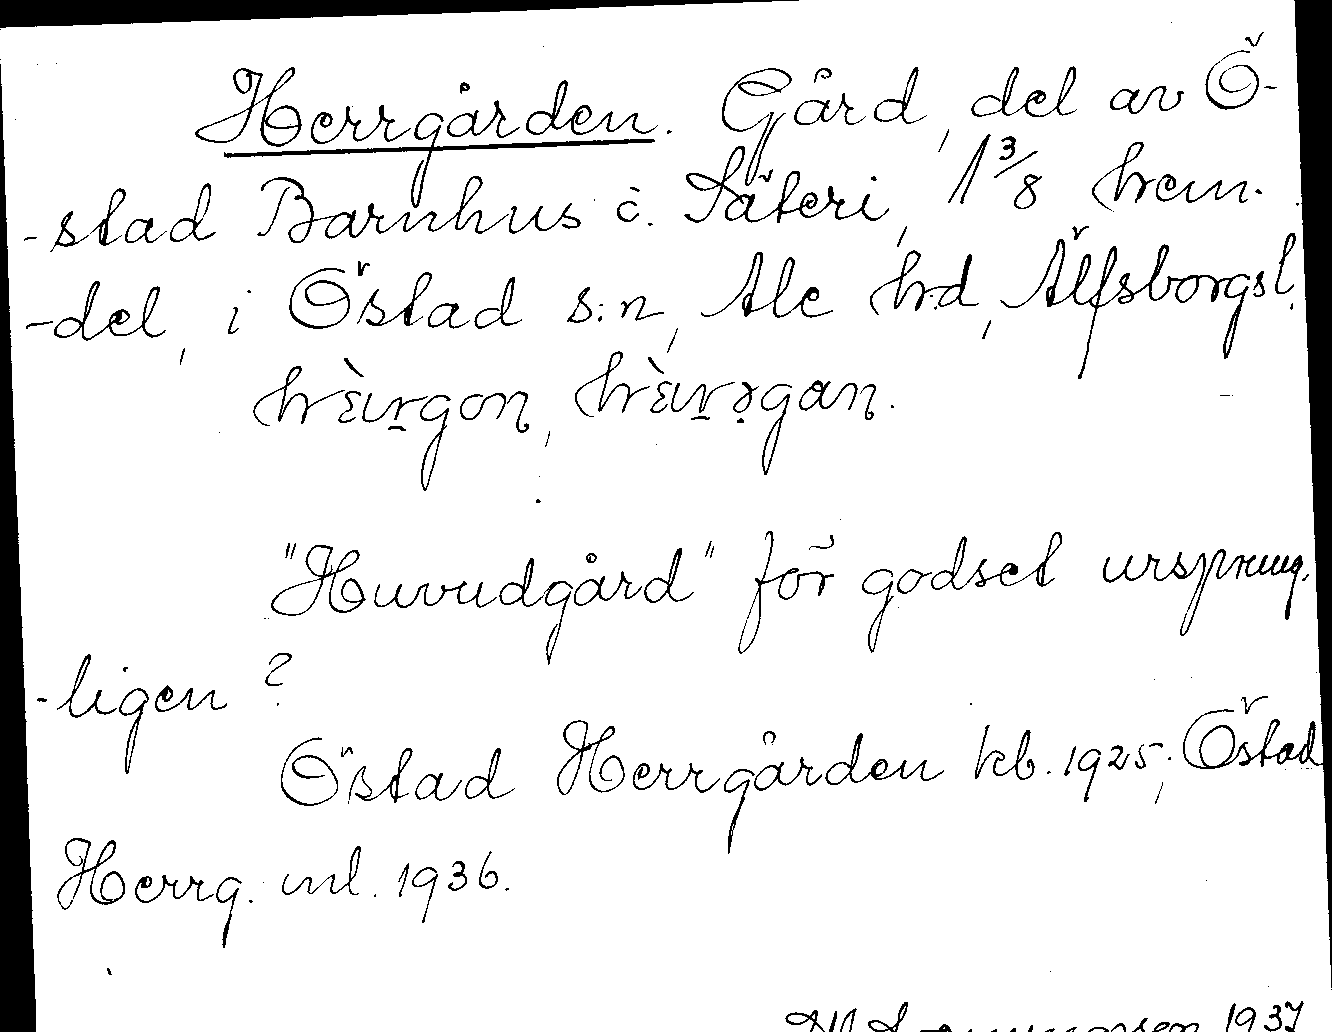 Herrgården. Gård, del av Ö-
-stad Barnhus o. Säteri, 1 3/8 hem-
-del, i Östad s:n, Ale hd, Älfsborgs l.
"Huvudgård" för godset ursprung-
-ligen?
Östad Herrgården kb. 1925; Östad
Herrg. ml. 1936.
1937